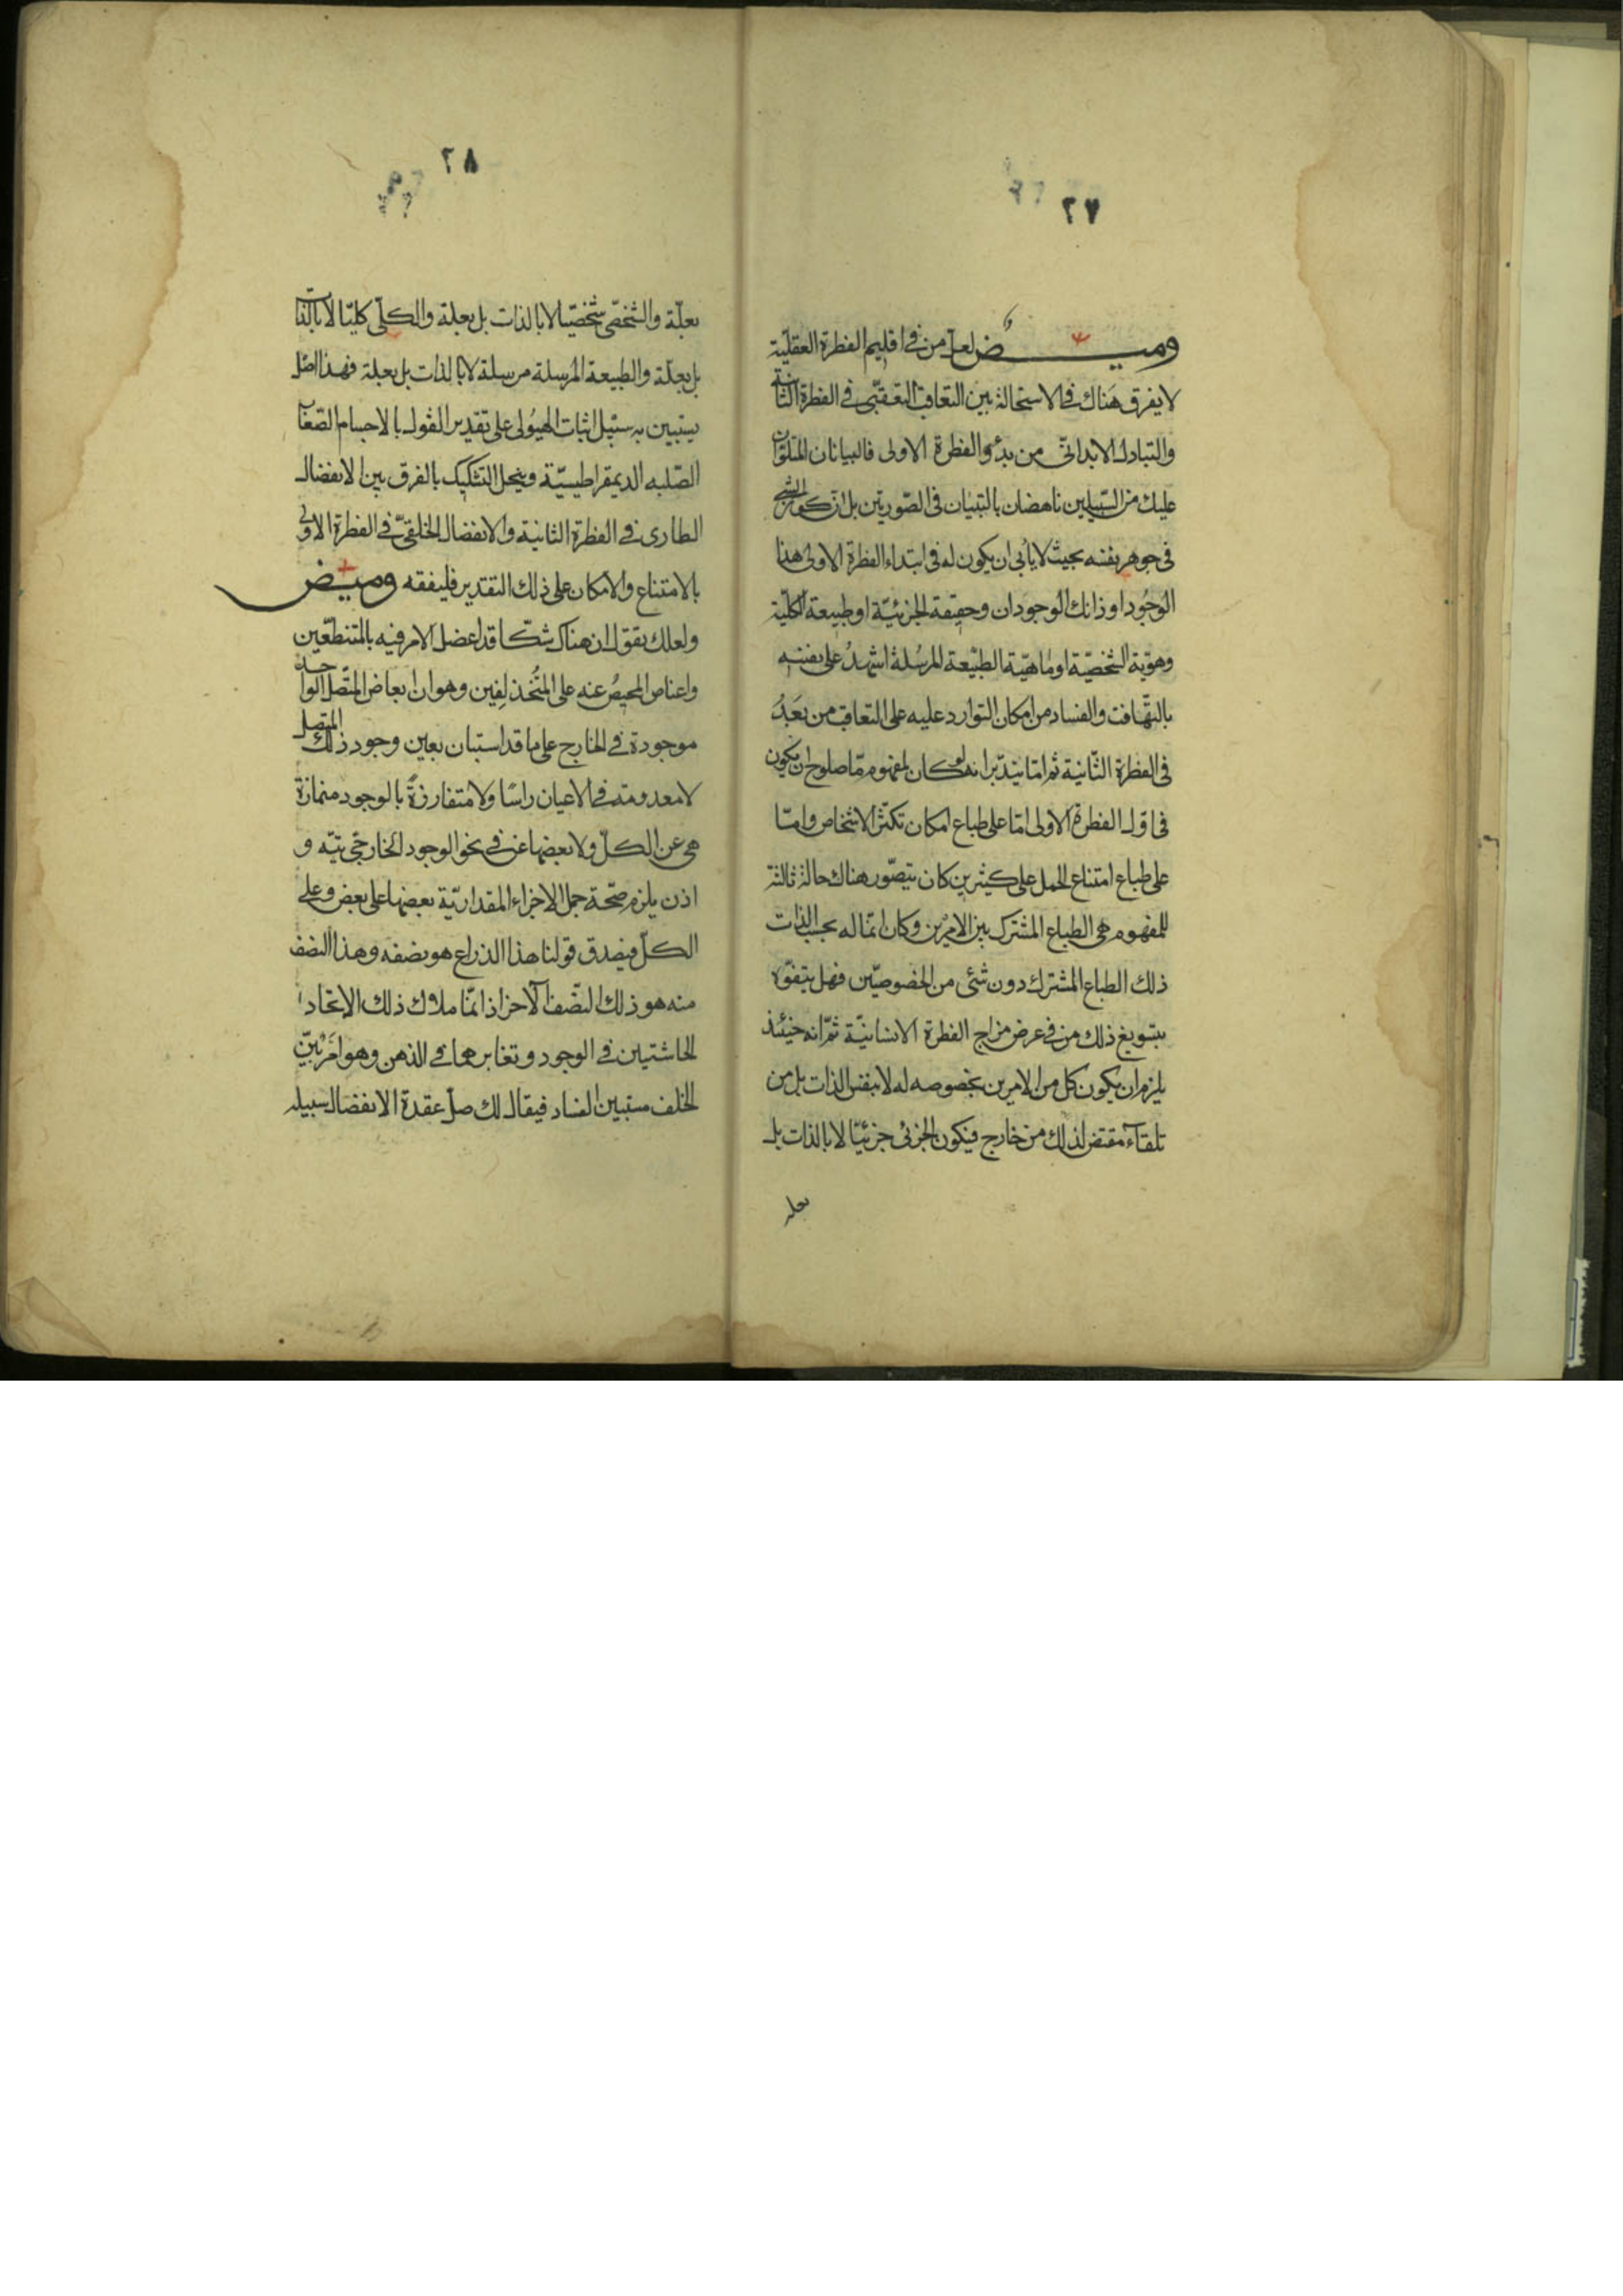 ٢٧
وميض لعل من في اقليم الفطرة العقلية
لا يفرق هناك في الاستحالة بين التعاقب التعقبى في الفطرة الثانية
والتبادل الابدائى من بدؤ الفطرة الاولى فالبيانان المتلوان
عليك من السبيلين ناهضان بالتبيان فى الصورتين بل ان كون الشئ
فى جوهر نفسه بحيث لا يأبى ان يكون له فى ابتداء الفطرة الاولى هذا
الوجود او ذانك الوجودان وحقيقة الجزئية او طبيعة الكلية
وهوية الشخصية او ماهية الطبيعة المرسلة اشهد على نفسه
بالتهافت والفساد من امكان التوارد عليه على التعاقب من بعد
فى الفطرة الثانية ثم اما يتدبر انه لو كان لمفهوم ما صلوح ان يكون
فى اول الفطرة الاولى اما على طباع امكان تكثر الاشخاص واما
على طباع امتناع الحمل على كثيرين كان يتصور هناك حالة ثالثة
للمفهوم هى الطباع المشترك بين الامرين وكان انما له بحسب الذات
ذلك الطباع المشترك دون شئ من الخصوصيتين فهل يتفوه
بتسويغ ذلك من فى عرض مزاج الفطرة الانسانية ثم انه حينئذ
يلزم ان يكون كل من الامرين بخصوصه له لا بنفس الذات بل من
تلقاء مقتض لذلك من خارج فيكون الجزئى جزئيا لا بالذات بل
بعلة
٢٨
بعلة والشخصى شخصيا لا بالذات بل بعلة والكلى كليا لا بالذات
بل بعلة والطبيعة المرسلة مرسلة لا بالذات بل بعلة فهذا اصل
يستبين به سبيل اثبات الهيولى على تقدير القول بالاجسام الصغار
الصلبه الديمقراطيسية وينحل التشكيك بالفرق بين الانفصال
الطارى فى الفطرة الثانية والانفصال الخلقى فى الفطرة الاولى
بالامتناع والامكان على ذلك التقدير فليفقه وميض
ولعلك تقول ان هناك شكا قد اعضل الامر فيه بالمتنطعين
واعتاص المحيص عنه على المتحذلقين وهو ان ابعاض المتصل الواحد
موجودة فى الخارج على ما قد استبان بعين وجود ذلك المتصل
لا معدومة فى الاعيان راسا ولا متفارزة بالوجود منمازة
هى عن الكل ولا بعضها عن فى نحو الوجود الخارجى بتيه و
اذن يلزم صحة حمل الاجزاء المقدارية بعضها على بعض وعلى
الكل فيصدق قولنا هذا الذراع هو نصفه وهذا النصف
منه هو ذلك النصف الآخر اذ انما ملاك ذلك الاتحاد
الحاشيتين فى الوجود وتغايرهما فى الذهن وهو امر بين
الخلف مستبين الفساد فيقال لك صل عقدة الانفصال سبيله